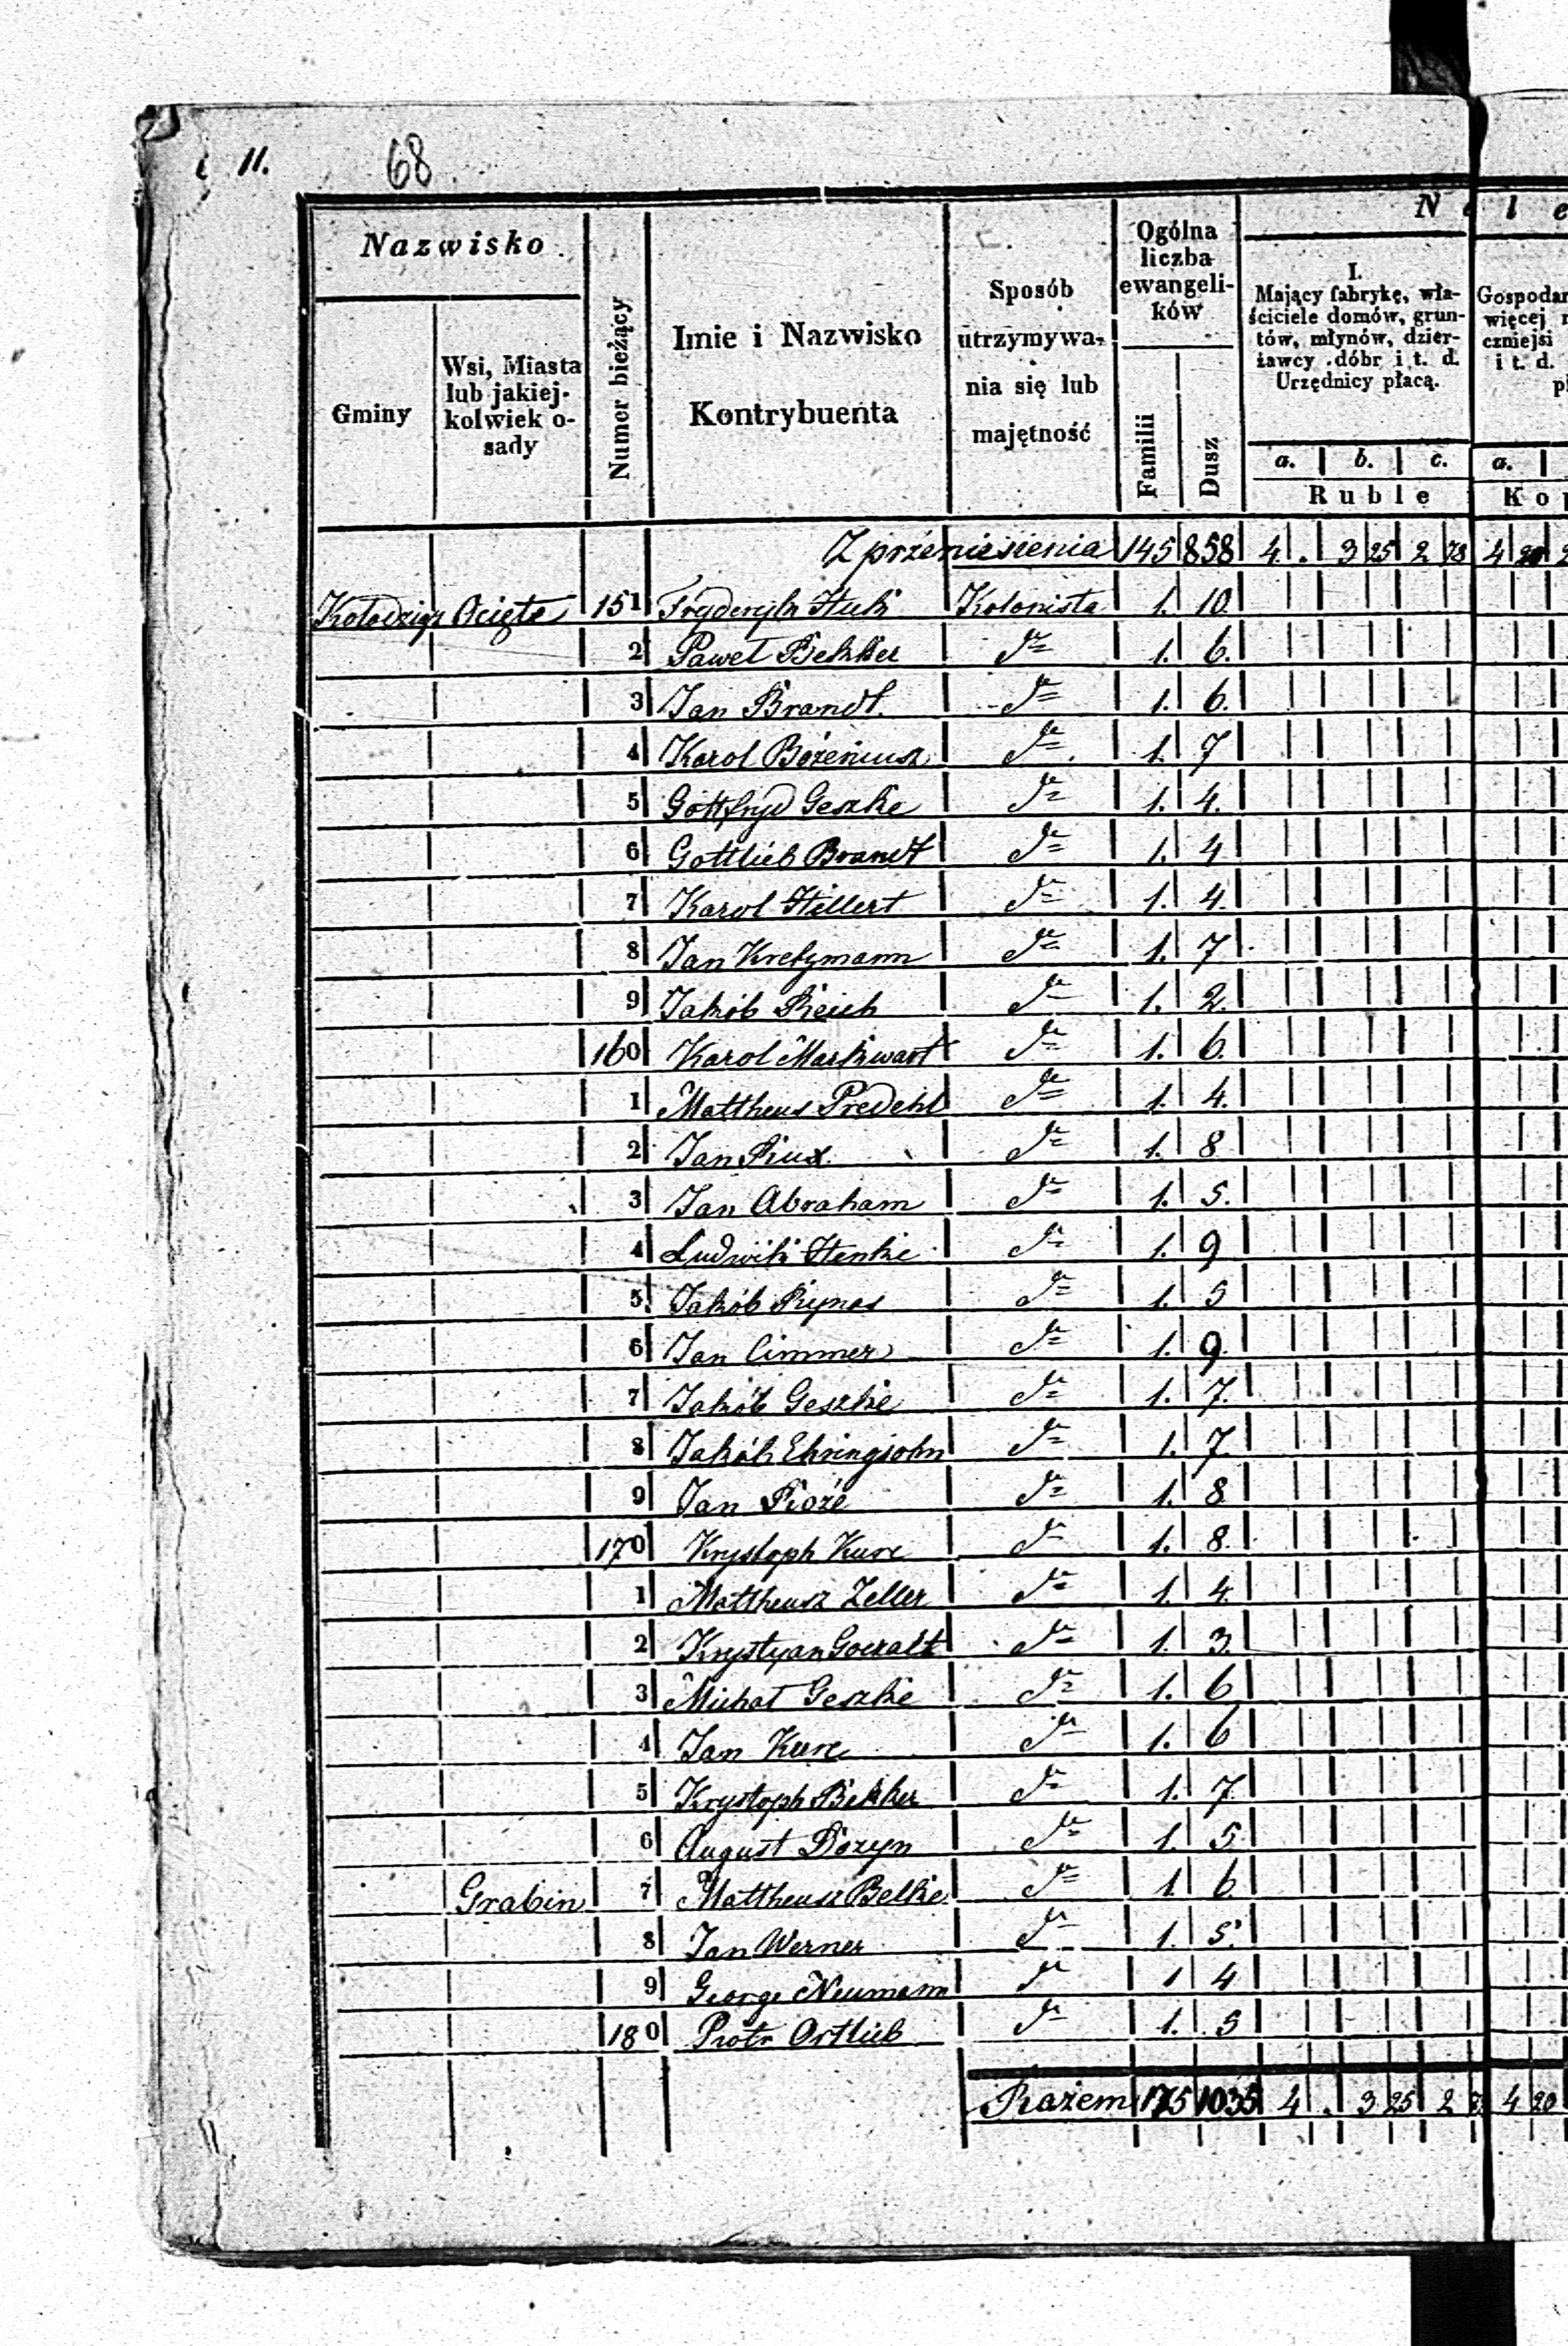 11.
68
Nazwisko
Gminy
Wsi, Miasta lub jakiej-kolwiek o-sady
Numer bieżący
Imie i Nazwisko Kontrybuenta
Sposób utrzymywa-nia się lub majętność
Ogólna liczba ewangeli-ków
Familii
Dusz
N l e
I. Mający fabrykę, wła-ściciele domów, grun-tów, młynów, dzier-żawcy dóbr i t. d. Urzędnicy płacą.
a. b. c.
Ruble
Gospodar więcej czniejsi i t. d.
a.
Ko
Z przeniesienia 145 858 4 . 3 25 2 78 4 20
Ocięte 151 Fryderyk Kolonista 1. 10.
2 Paweł Bekker do 1. 6.
3 Jan Brandt. do 1. 6.
4 Karol do 1. 7
5 Gottfryd Geszke do 1. 4.
6 Gottlieb Brandt do 1. 4
7 Karol Hillert do 1. 4.
8 Jan Kretzmann do 1. 7
9 Jakób do 1. 2.
160 Karol Markwart do 1. 6.
1 Mattheus Predehl do 1. 4.
2 Jan do 1. 8
3 Jan Abraham do 1. 5.
4 Ludwik Henke do 1. 9
5 Jakób do 1. 5
6 Jan Cimmer do 1. 9.
7 Jakób Geszke do 1. 7.
8 Jakób do 1. 7.
9 Jan do 1. 8
170 Krystoph Kurc do 1. 8.
1 Mattheusz Zeller do 1. 4.
2 Krystyan do 1. 3.
3 Michał Geszke do 1. 6
4 Jan Kurc do 1. 6
5 Krystoph Bekker do 1. 7.
6 August do 1. 5
Grabin 7 Mattheusz Belke do 1 6
8 Jan Werner do 1. 5.
9 George Neumann do 1 4
180 Piotr Ortlieb do 1. 5
Razem 175 1035 4 . 3 25 2 4 20